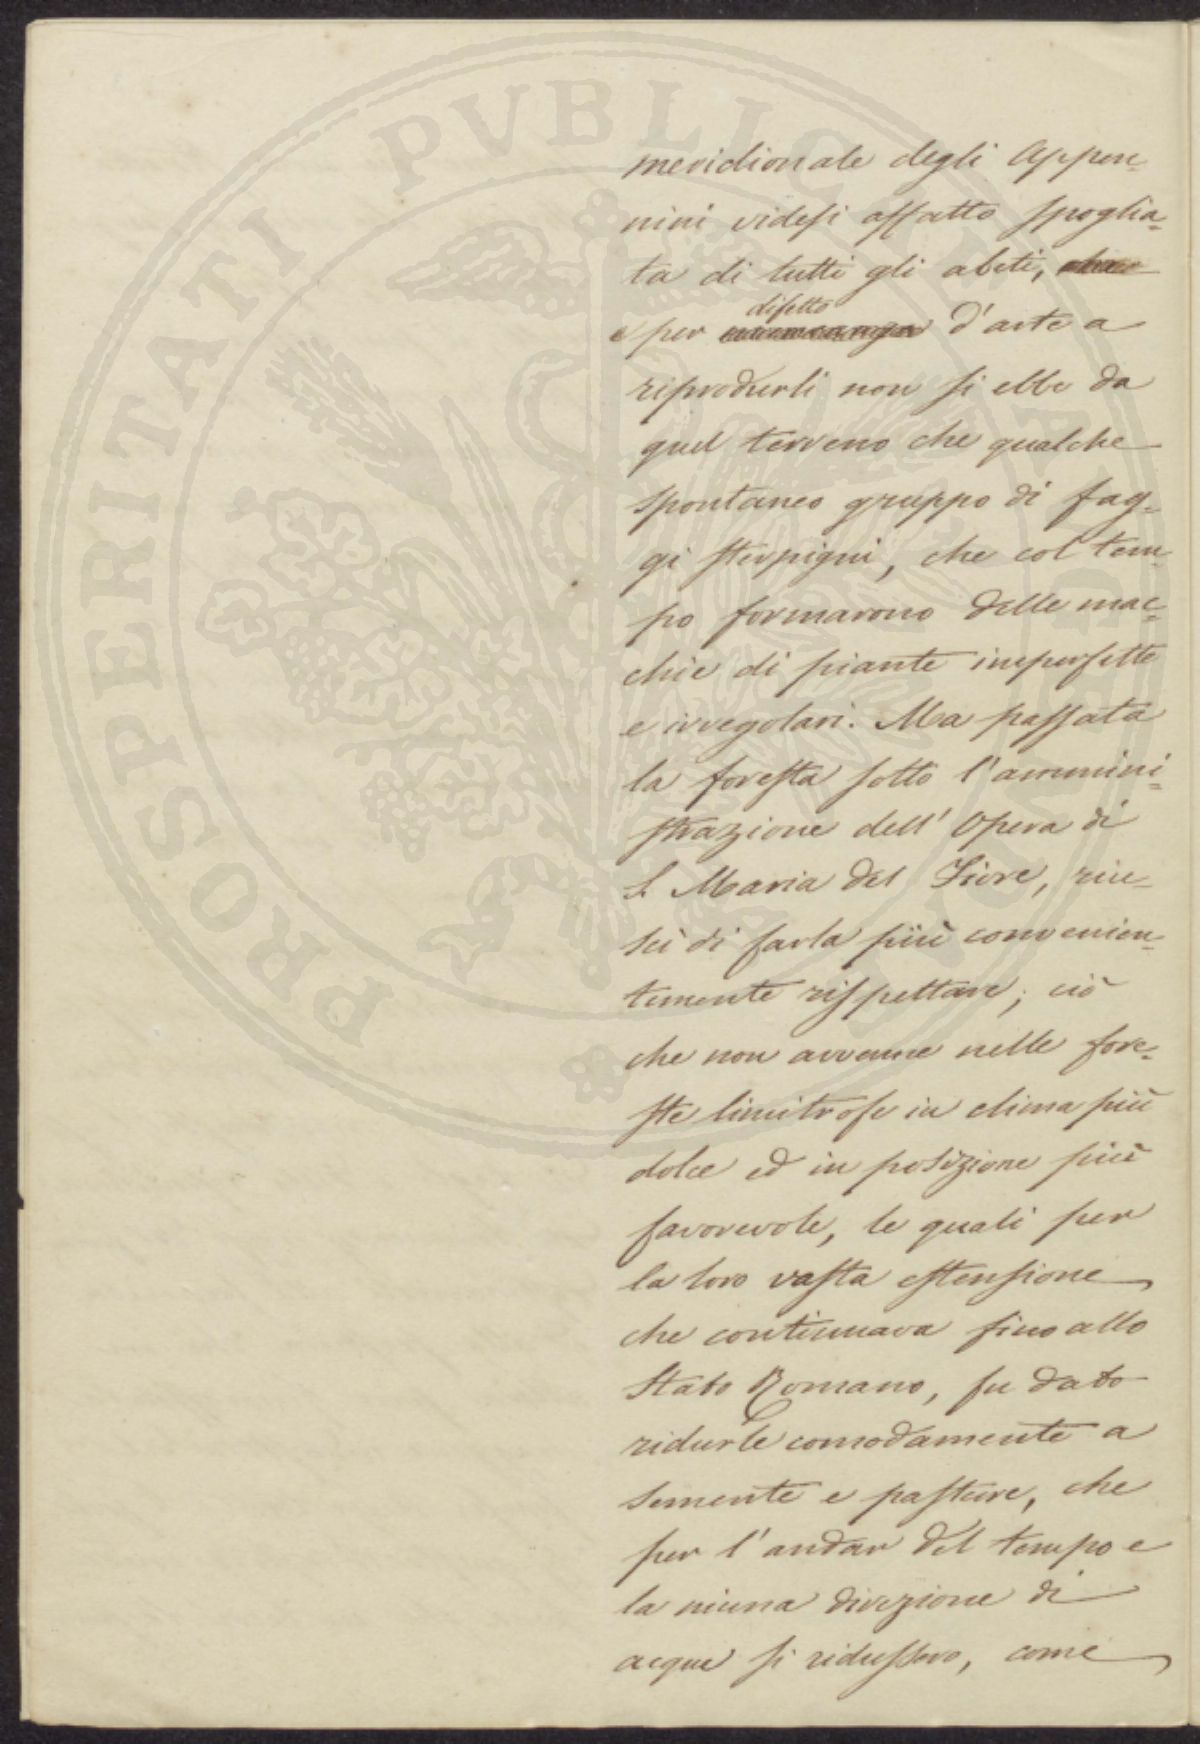 PROSPERITATI PVBLICAE
meridionale degli Appen-
nini videsi affatto spoglia-
ta di tutti gli abeti,
difetto
e per d'arte a
riprodurli non si ebbe da
quel terreno che qualche
spontaneo gruppo di fag-
gi sterpigni, che col tem-
po formarono delle mac-
chie di piante imperfette
e irregolari. Ma passata
la foresta sotto l'ammini-
strazione dell' Opera di
S. Maria del Fiore, riu-
scì di farla più convenien-
temente rispettare; ciò
che non avvenne nelle fore-
ste limitrofe in clima più
dolce ed in posizione più
favorevole, le quali per
la loro vasta estensione
che continuava fino allo
Stato Romano, fu dato
ridurle comodamente a
semente e pasture, che
per l'andar del tempo e
la niuna direzione di
acque si ridussero, come